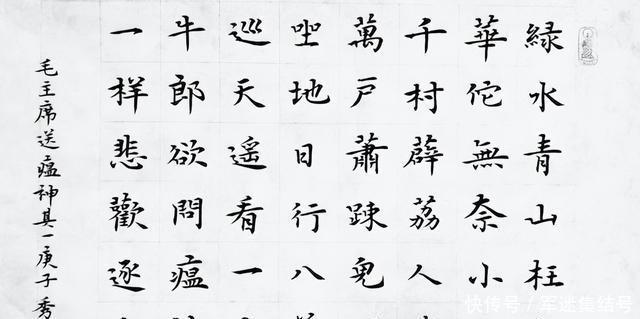 緑水青山枉
華佗無奈小
千村薜荔人
萬戶蕭踈鬼
坐地日行八
巡天遥看一
牛郎欲問瘟
一样悲歡逐
毛主席送瘟神其一庚子秀
快传号 / 军迷集结号